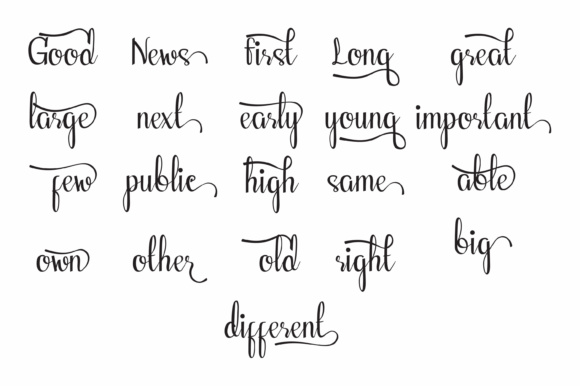 Good News first Long great
large next early young important
few public high same able
own other old right big
different